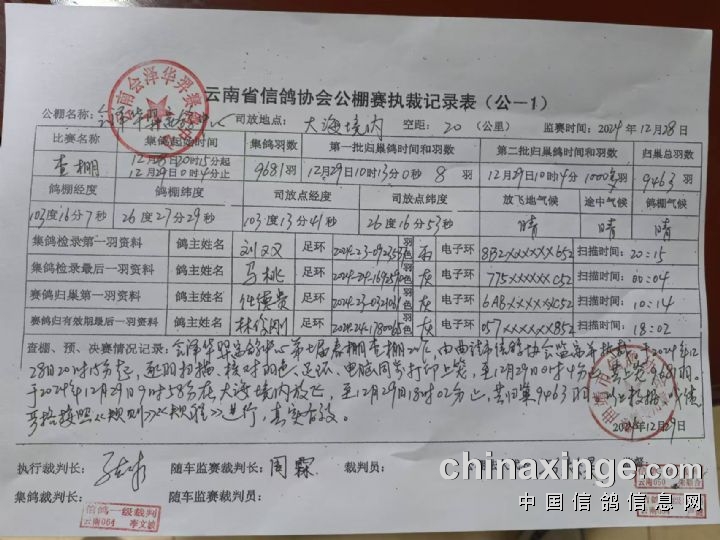 云南省信鸽协会公棚赛执裁记录表（公—1）
公棚名称： 会泽华羿赛鸽中心 司放地点： 大海境内 空距： 20 （公里） 监赛时间：2024年12月28日
比赛名称 集鸽起始时间 集鸽羽数 第一批归巢鸽时间和羽数 第二批归巢鸽时间和羽数 归巢总羽数
查棚 12月28日20时15分起 9681羽 12月29日10时13分0秒 8羽 12月29日10时4分 1000多羽 9463羽
12月29日0时4分止
鸽棚经度 鸽棚纬度 司放点经度 司放点纬度 放飞地气候 途中气候 鸽棚气候
103度16分7秒 26度27分29秒 103度13分41秒 26度16分53秒 晴 晴 晴
集鸽检录第一羽资料 鸽主姓名 足环 羽色 雨 电子环 8B2xxxxxx652 扫描时间：20:15
集鸽检录最后一羽资料 鸽主姓名 马桃 足环 羽色 灰 电子环 775xxxxxxC52 扫描时间：00:04
赛鸽归巢第一羽资料 鸽主姓名 任德贵 足环 羽色 灰 电子环 6ABxxxxxxC52 扫描时间：10:14
赛鸽归有效期最后一羽资料 鸽主姓名 足环 羽色 灰 电子环 057xxxxxxB52 扫描时间：18:02
查棚、预、决赛情况记录：会泽华羿赛鸽中心第七届春棚查棚20公里，由曲靖市信鸽协会监赛并执裁，于2024年12
月28日20时15分起，逐羽扫描、核对羽色、足环、电脑同步打印上笼，至12月29日0时4分止，共上笼9681羽。
于2024年12月29日9时58分在大海境内放飞，至12月29日18时02分止，共归巢9463羽。
按照《规则》《规程》进行，真实有效。
2024年12月29日
执行裁判长： 随车监赛裁判长： 周霖 裁判员：
集鸽裁判长： 随车监赛裁判员：
信鸽一级裁判
云南064 李文敏
云南060
www.chinaxinge.com
中国信鸽信息网